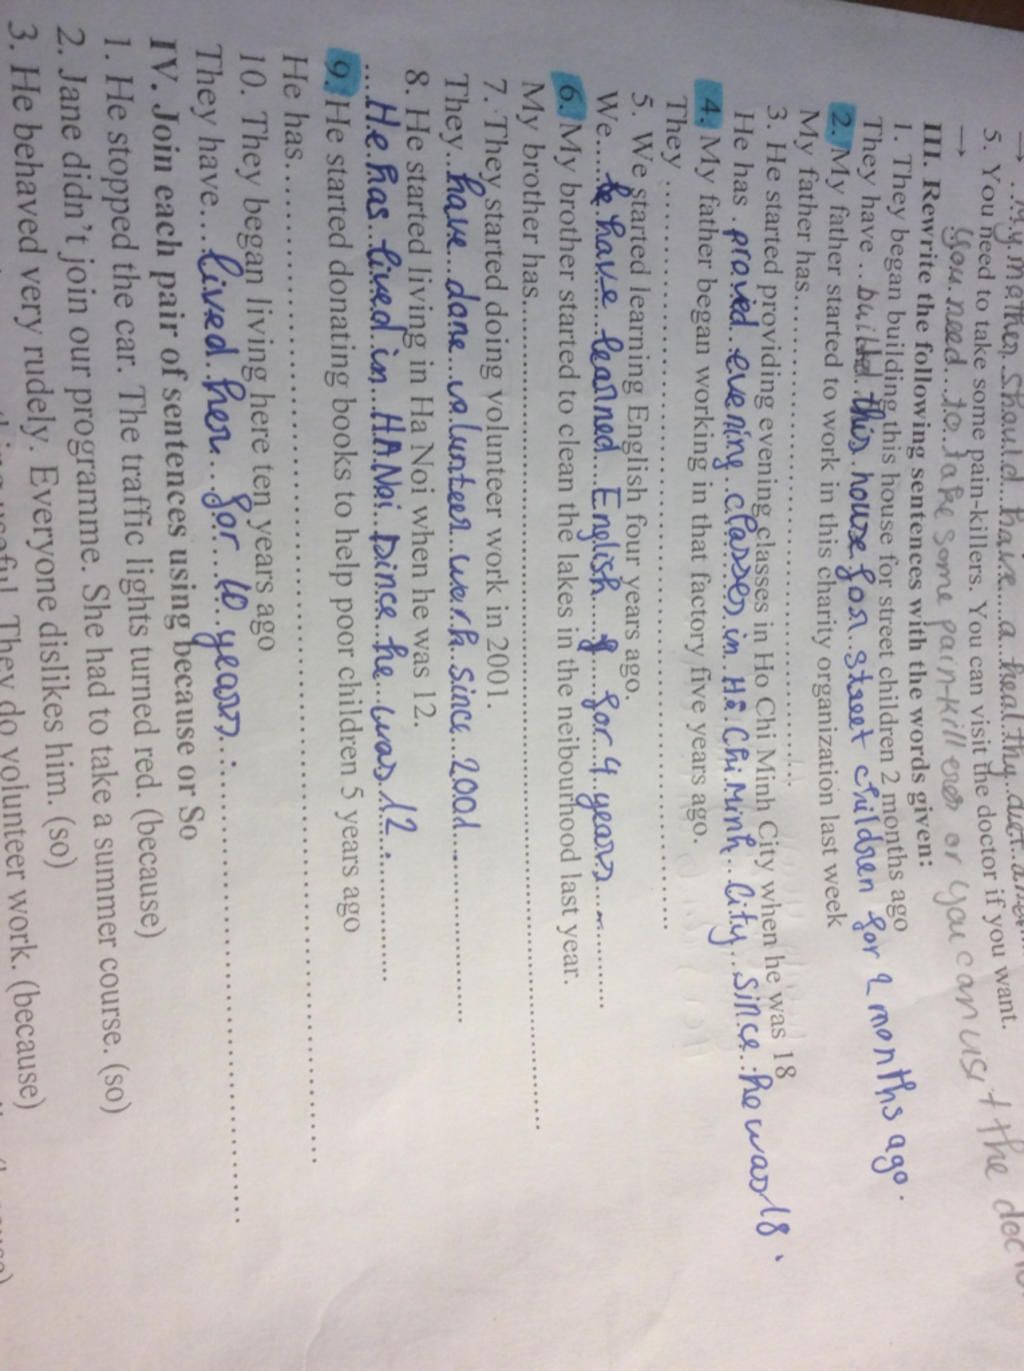 → ..My mother should have a healthy diet
5. You need to take some pain-killers. You can visit the doctor if you want.
→ You need to take some pain-killers or you can visit the doctor
III. Rewrite the following sentences with the words given:
1. They began building this house for street children 2 months ago
They have .. build this house for street children for 2 months ago.
2. My father started to work in this charity organization last week
My father has..........................................................
3. He started providing evening classes in Ho Chi Minh City when he was 18
He has . proved evening classes in Hồ Chi Minh City since he was 18.
4. My father began working in that factory five years ago.
They ..........................................................
5. We started learning English four years ago.
We.... have learned English for 4 years
6. My brother started to clean the lakes in the neibourhood last year.
My brother has..........................................................
7. They started doing volunteer work in 2001.
They.. have done volunteer work since 2001
8. He started living in Ha Noi when he was 12.
....He has lived in HA Noi since he was 12.
9. He started donating books to help poor children 5 years ago
He has..........................................................
10. They began living here ten years ago
They have.... lived here for 10 years.
IV. Join each pair of sentences using because or So
1. He stopped the car. The traffic lights turned red. (because)
2. Jane didn't join our programme. She had to take a summer course. (so)
3. He behaved very rudely. Everyone dislikes him. (so)
useful. They do volunteer work. (because)